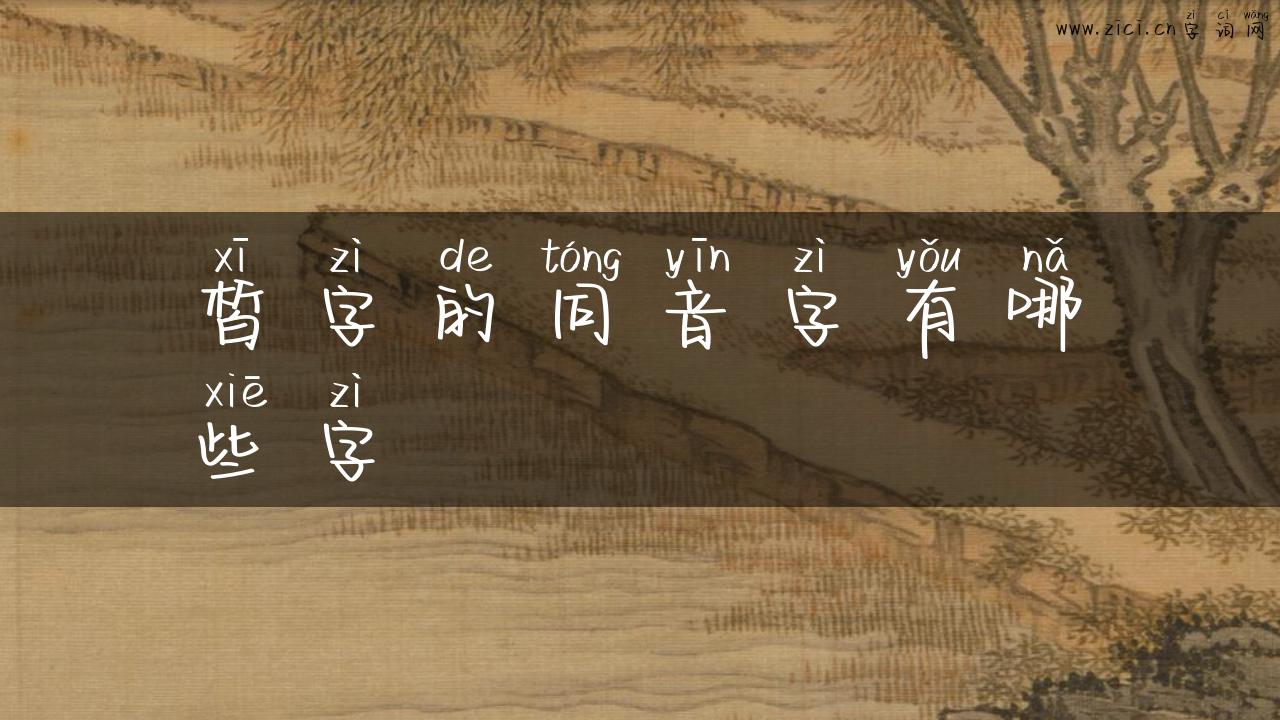 zì cí wǎng
www.zici.cn 字词网
xī zì de tóng yīn zì yǒu nǎ
皙字的同音字有哪
xiē zì
些字